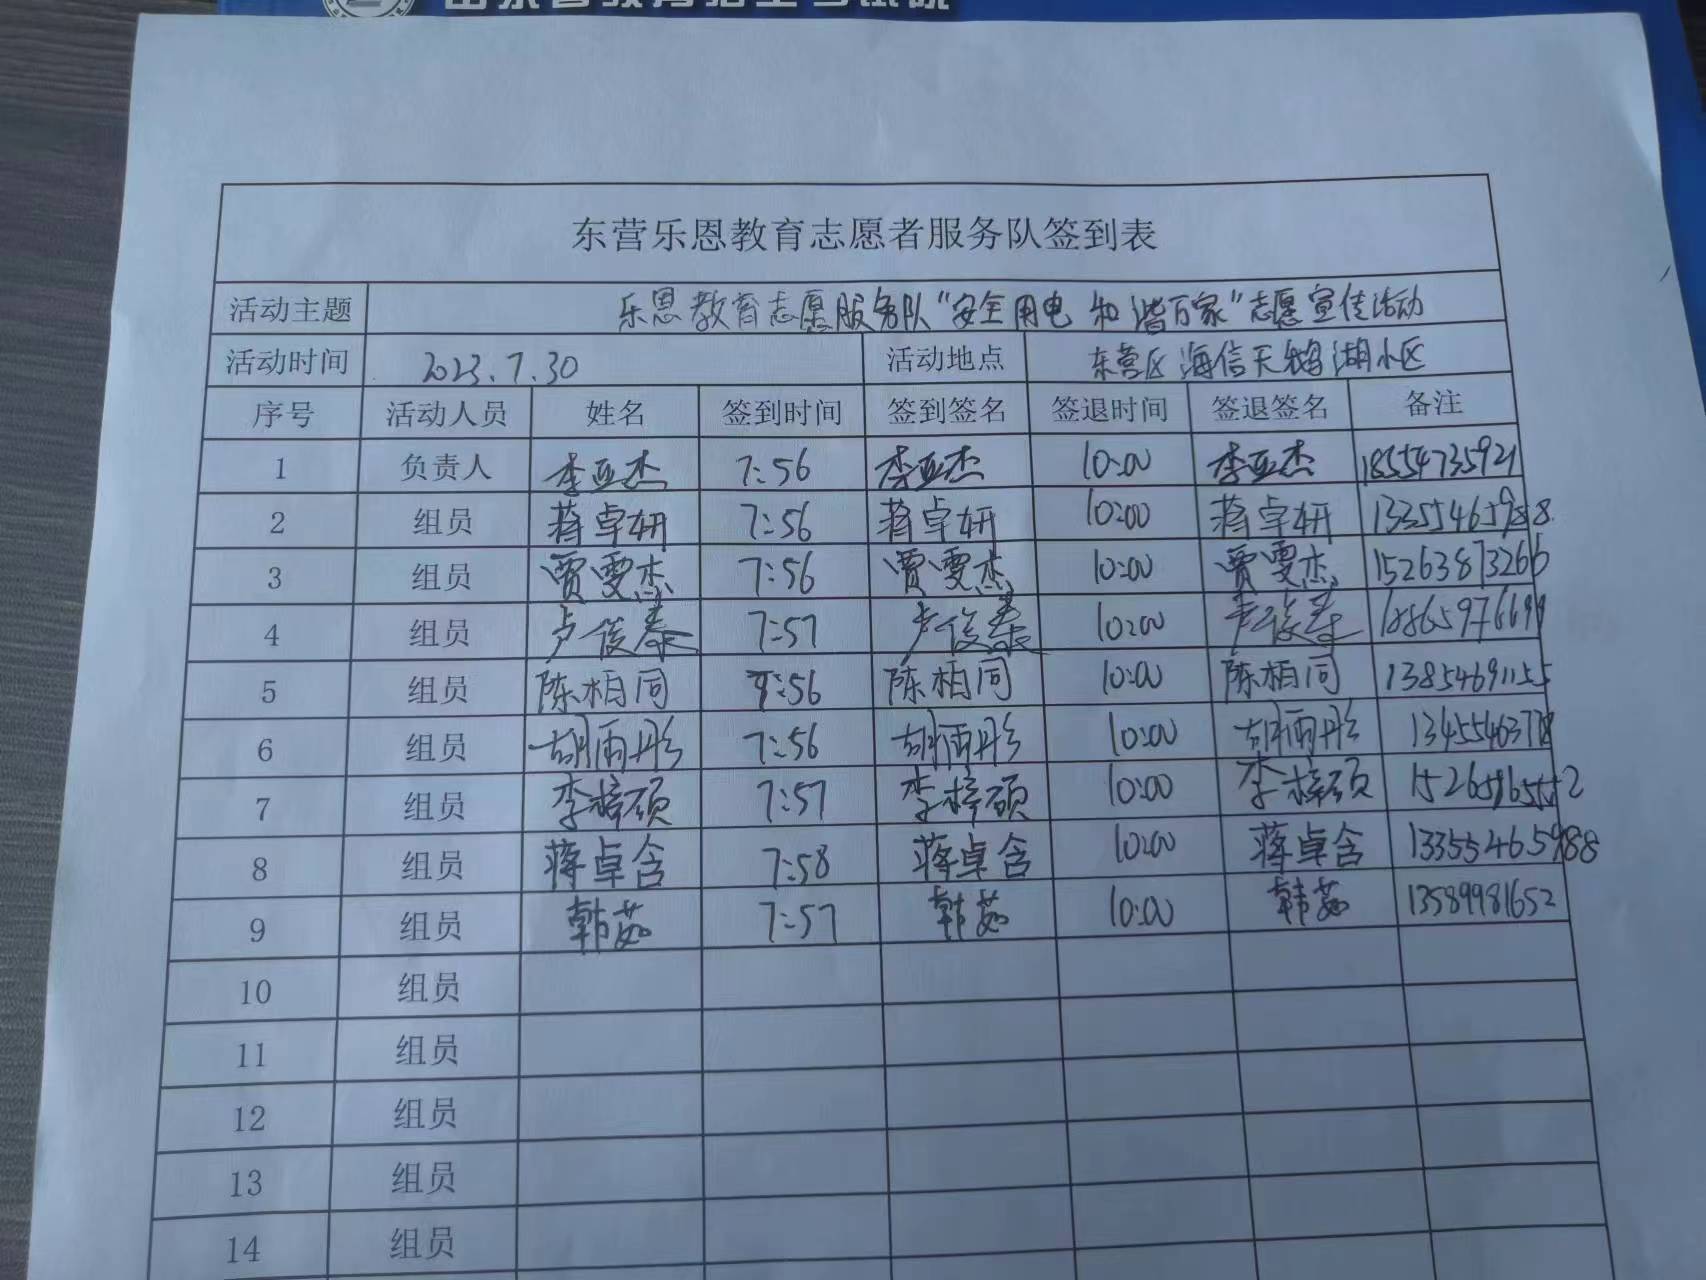 山东省教育招生考试院
东营乐恩教育志愿者服务队签到表
活动主题 乐恩教育志愿服务队“安全用电 和谐万家”志愿宣传活动
活动时间 2023.7.30 活动地点 东营区海信天鹅湖小区
序号 活动人员 姓名 签到时间 签到签名 签退时间 签退签名 备注
1 负责人 李亚杰 7:56 李亚杰 10:00 李亚杰 18554735921
2 组员 蒋卓妍 7:56 蒋卓妍 10:00 蒋卓妍 13355465988
3 组员 贾雯杰 7:56 贾雯杰 10:00 贾雯杰 15263873266
4 组员 卢俊泰 7:57 卢俊泰 10:00 卢俊泰
5 组员 陈柏同 7:56 陈柏同 10:00 陈柏同 13854691155
6 组员 胡雨彤 7:56 胡雨彤 10:00 胡雨彤
7 组员 李梓硕 7:57 李梓硕 10:00 李梓硕
8 组员 蒋卓含 7:58 蒋卓含 10:00 蒋卓含 13355465988
9 组员 韩茹 7:57 韩茹 10:00 韩茹 13589981652
10 组员
11 组员
12 组员
13 组员
14 组员